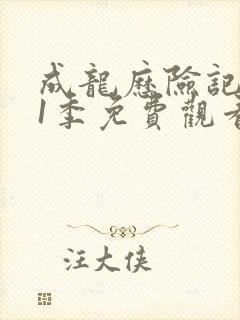 成龍歷險記
1季免費觀看
汪大侠